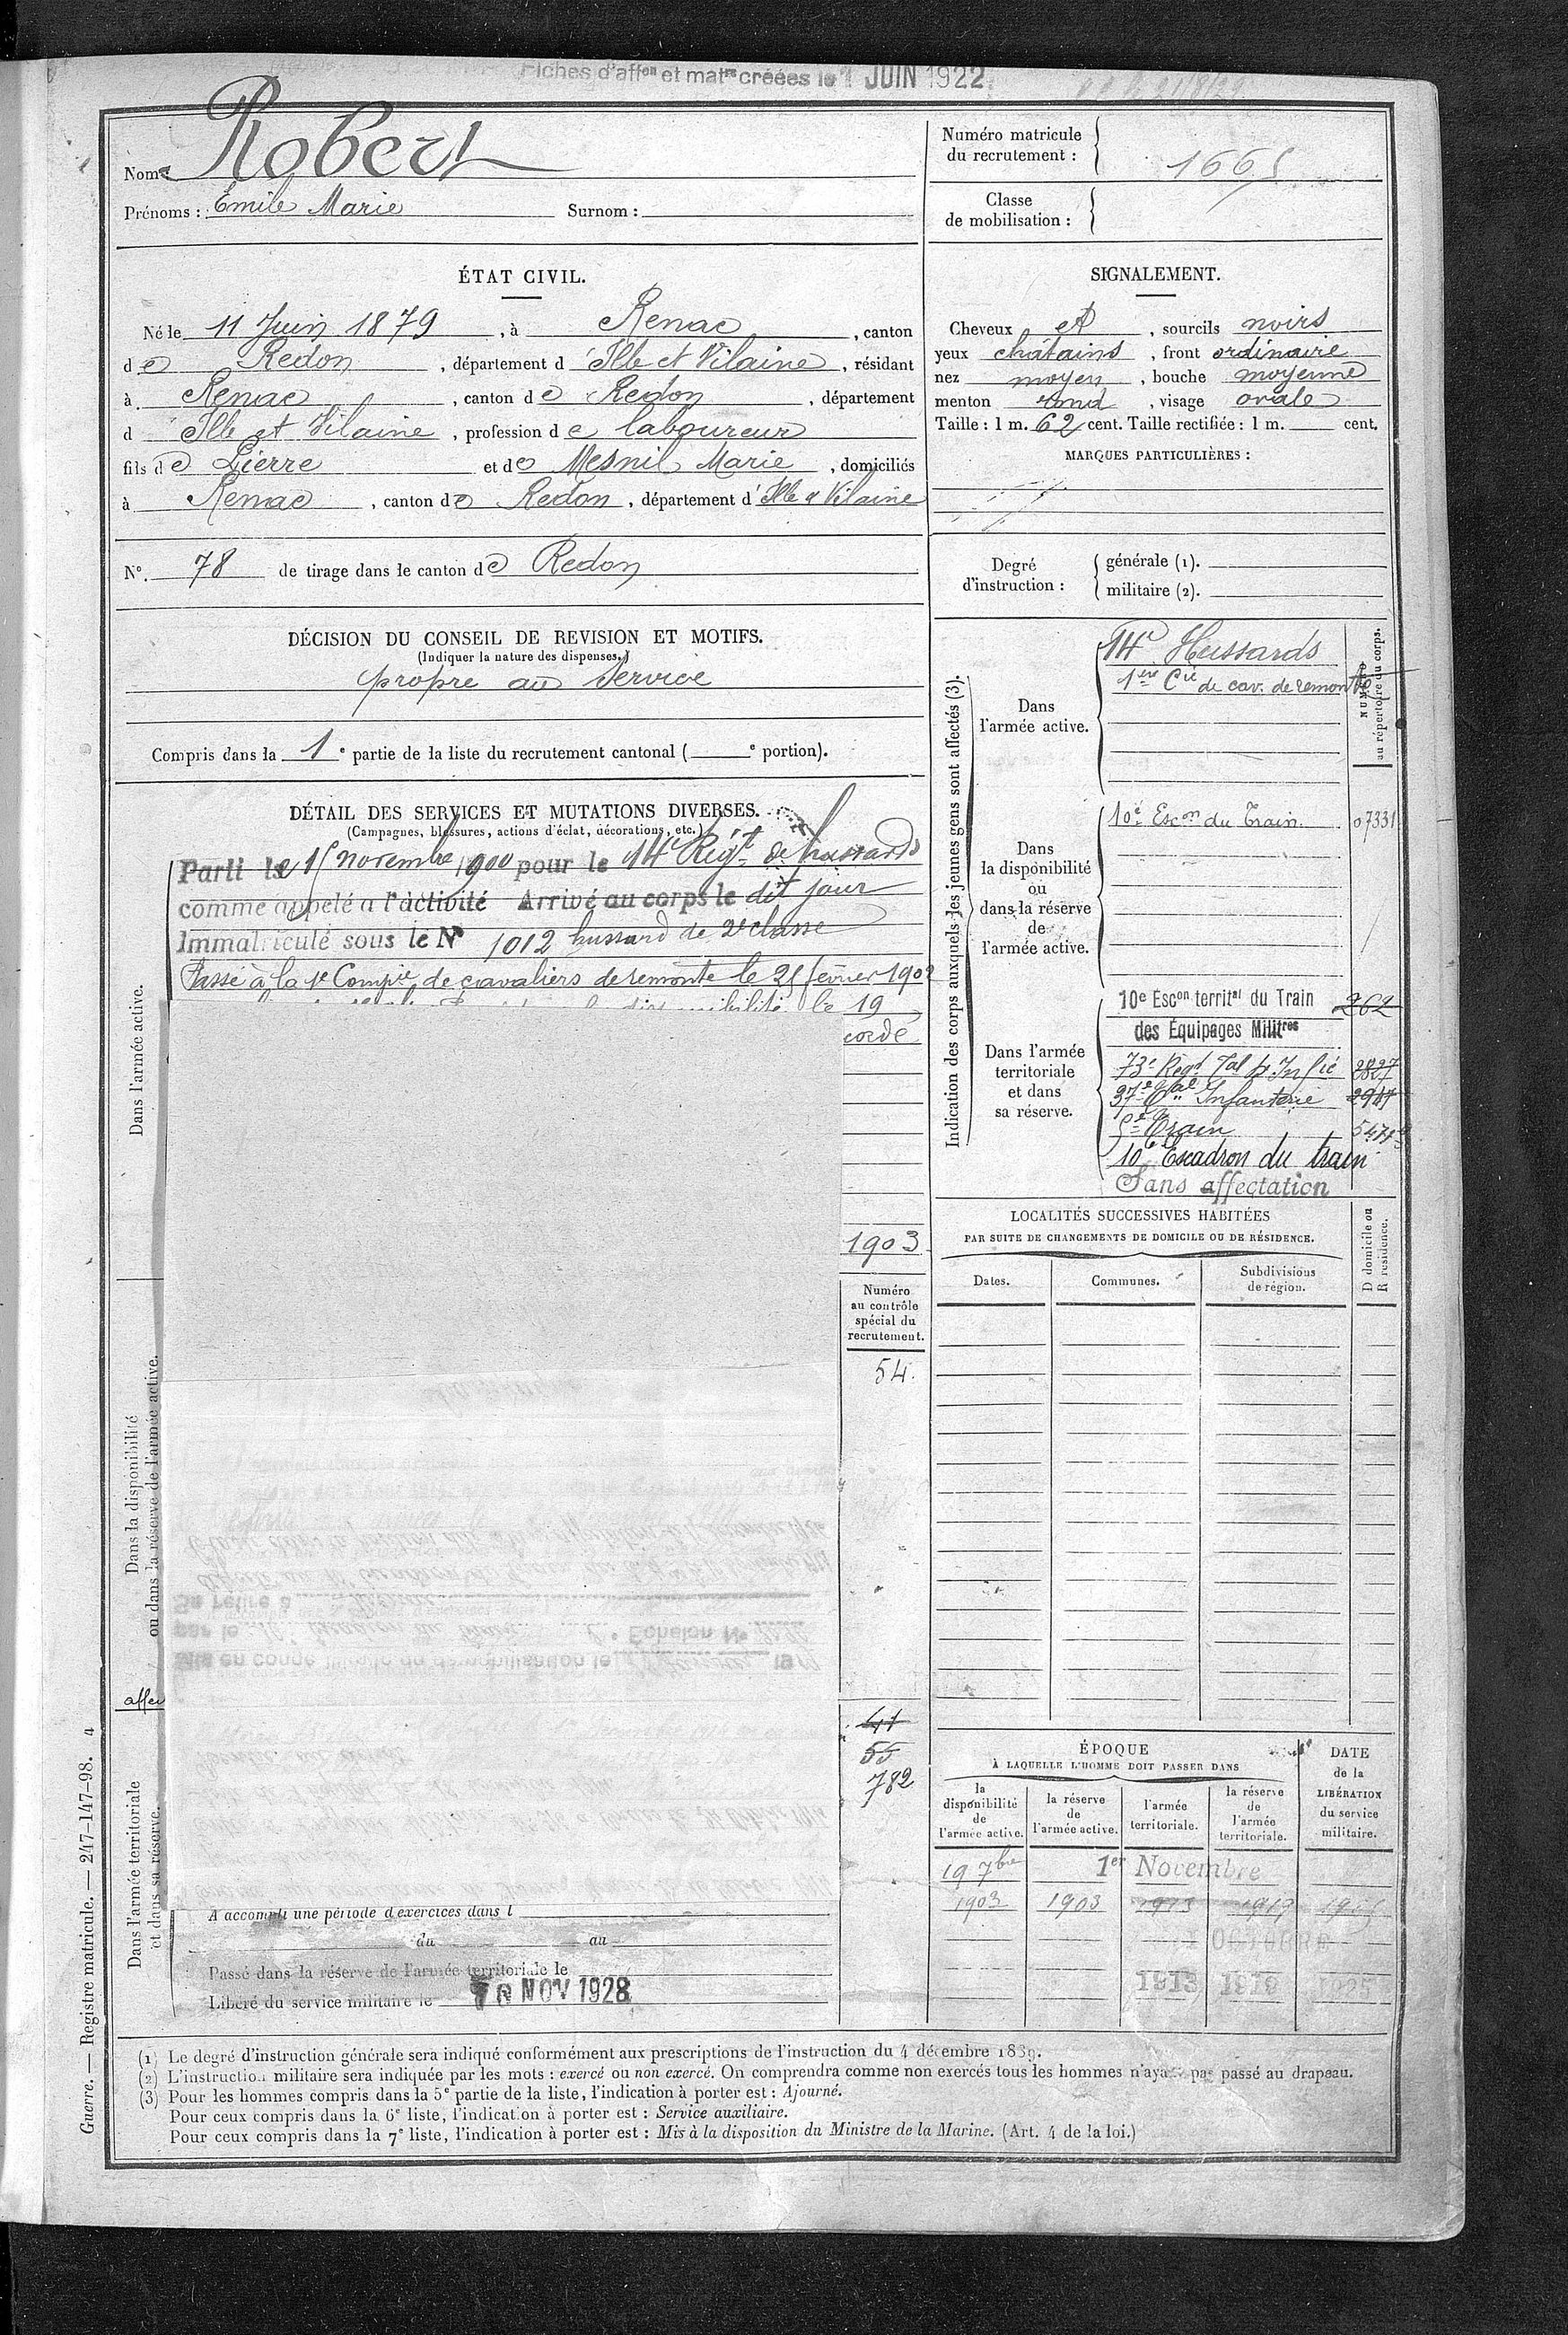 Fiches d'affon et matres créées le 1 JUIN 1922.
Nom : Robert
Prénoms : Emile Marie Surnom :
ÉTAT CIVIL.
Né le 11 Juin 1879, à Renac, canton
de Redon, département d'Ille et Vilaine, résidant
à Renac, canton de Redon, département
d'Ille et Vilaine, profession de laboureur
fils de Pierre et de Mesnil Marie, domiciliés
à Renac, canton de Redon, département d'Ille & Vilaine
N°. 78 de tirage dans le canton de Redon
DÉCISION DU CONSEIL DE REVISION ET MOTIFS.
(Indiquer la nature des dispenses.)
propre au Service
Compris dans la 1e partie de la liste du recrutement cantonal ( e portion).
DÉTAIL DES SERVICES ET MUTATIONS DIVERSES.
(Campagnes, blessures, actions d'éclat, décorations, etc.)
Parti le 15 novembre 1900 pour le 14e Régt de hussards
comme appelé à l'activité Arrivé au corps le dit jour
Immatriculé sous le N° 1012 hussard de 2e classe
Passé à la 1e Compie de cavaliers de remonte le 25 février 1902
le 19
cordé
1903
Dans l'armée active.
Numéro
au contrôle
spécial du
recrutement.
54.
Dans la disponibilité
ou dans la réserve de l'armée active.
affec
41
55
782
Dans l'armée territoriale
et dans sa réserve.
A accompli une période d'exercices dans l
du au
Passé dans la réserve de l'armée territoriale le
Libéré du service militaire le 10 NOV 1928
Numéro matricule
du recrutement : 1665
Classe
de mobilisation :
SIGNALEMENT.
Cheveux et, sourcils noirs
yeux châtains, front ordinaire
nez moyen, bouche moyenne
menton rond, visage ovale
Taille : 1 m. 62 cent. Taille rectifiée : 1 m. cent.
MARQUES PARTICULIÈRES :
Degré
d'instruction :
générale (1).
militaire (2).
Indication des corps auxquels les jeunes gens sont affectés (3).
NUMÉRO
au répertoire du corps.
Dans
l'armée active.
14e Hussards
1ère Cie de cav. de remonte
Dans
la disponibilité
ou
dans la réserve
de
l'armée active.
10e Escon du Train. 07331
Dans l'armée
territoriale
et dans
sa réserve.
10e Escon territal du Train 262
des Équipages Militres
73e Regt Tal d'Infie 2827
37e Tal Infanterie
5e Train
10e Escadron du train
Sans affectation
LOCALITÉS SUCCESSIVES HABITÉES
PAR SUITE DE CHANGEMENTS DE DOMICILE OU DE RÉSIDENCE.
Dates. Communes. Subdivisions
de région.
D domicile ou
R résidence.
ÉPOQUE
À LAQUELLE L'HOMME DOIT PASSER DANS
la
disponibilité
de
l'armée active.
la réserve
de
l'armée active.
l'armée
territoriale.
la réserve
de
l'armée
territoriale.
DATE
de la
LIBÉRATION
du service
militaire.
19 7bre 1er Novembre
1903 1903 1913 1919
1 OCTOBRE
1913 1919 1925
(1) Le degré d'instruction générale sera indiqué conformément aux prescriptions de l'instruction du 4 décembre 1889.
(2) L'instruction militaire sera indiquée par les mots : exercé ou non exercé. On comprendra comme non exercés tous les hommes n'ayant pas passé au drapeau.
(3) Pour les hommes compris dans la 5e partie de la liste, l'indication à porter est : Ajourné.
Pour ceux compris dans la 6e liste, l'indication à porter est : Service auxiliaire.
Pour ceux compris dans la 7e liste, l'indication à porter est : Mis à la disposition du Ministre de la Marine. (Art. 4 de la loi.)
Guerre. — Registre matricule. — 247-147-98. 4